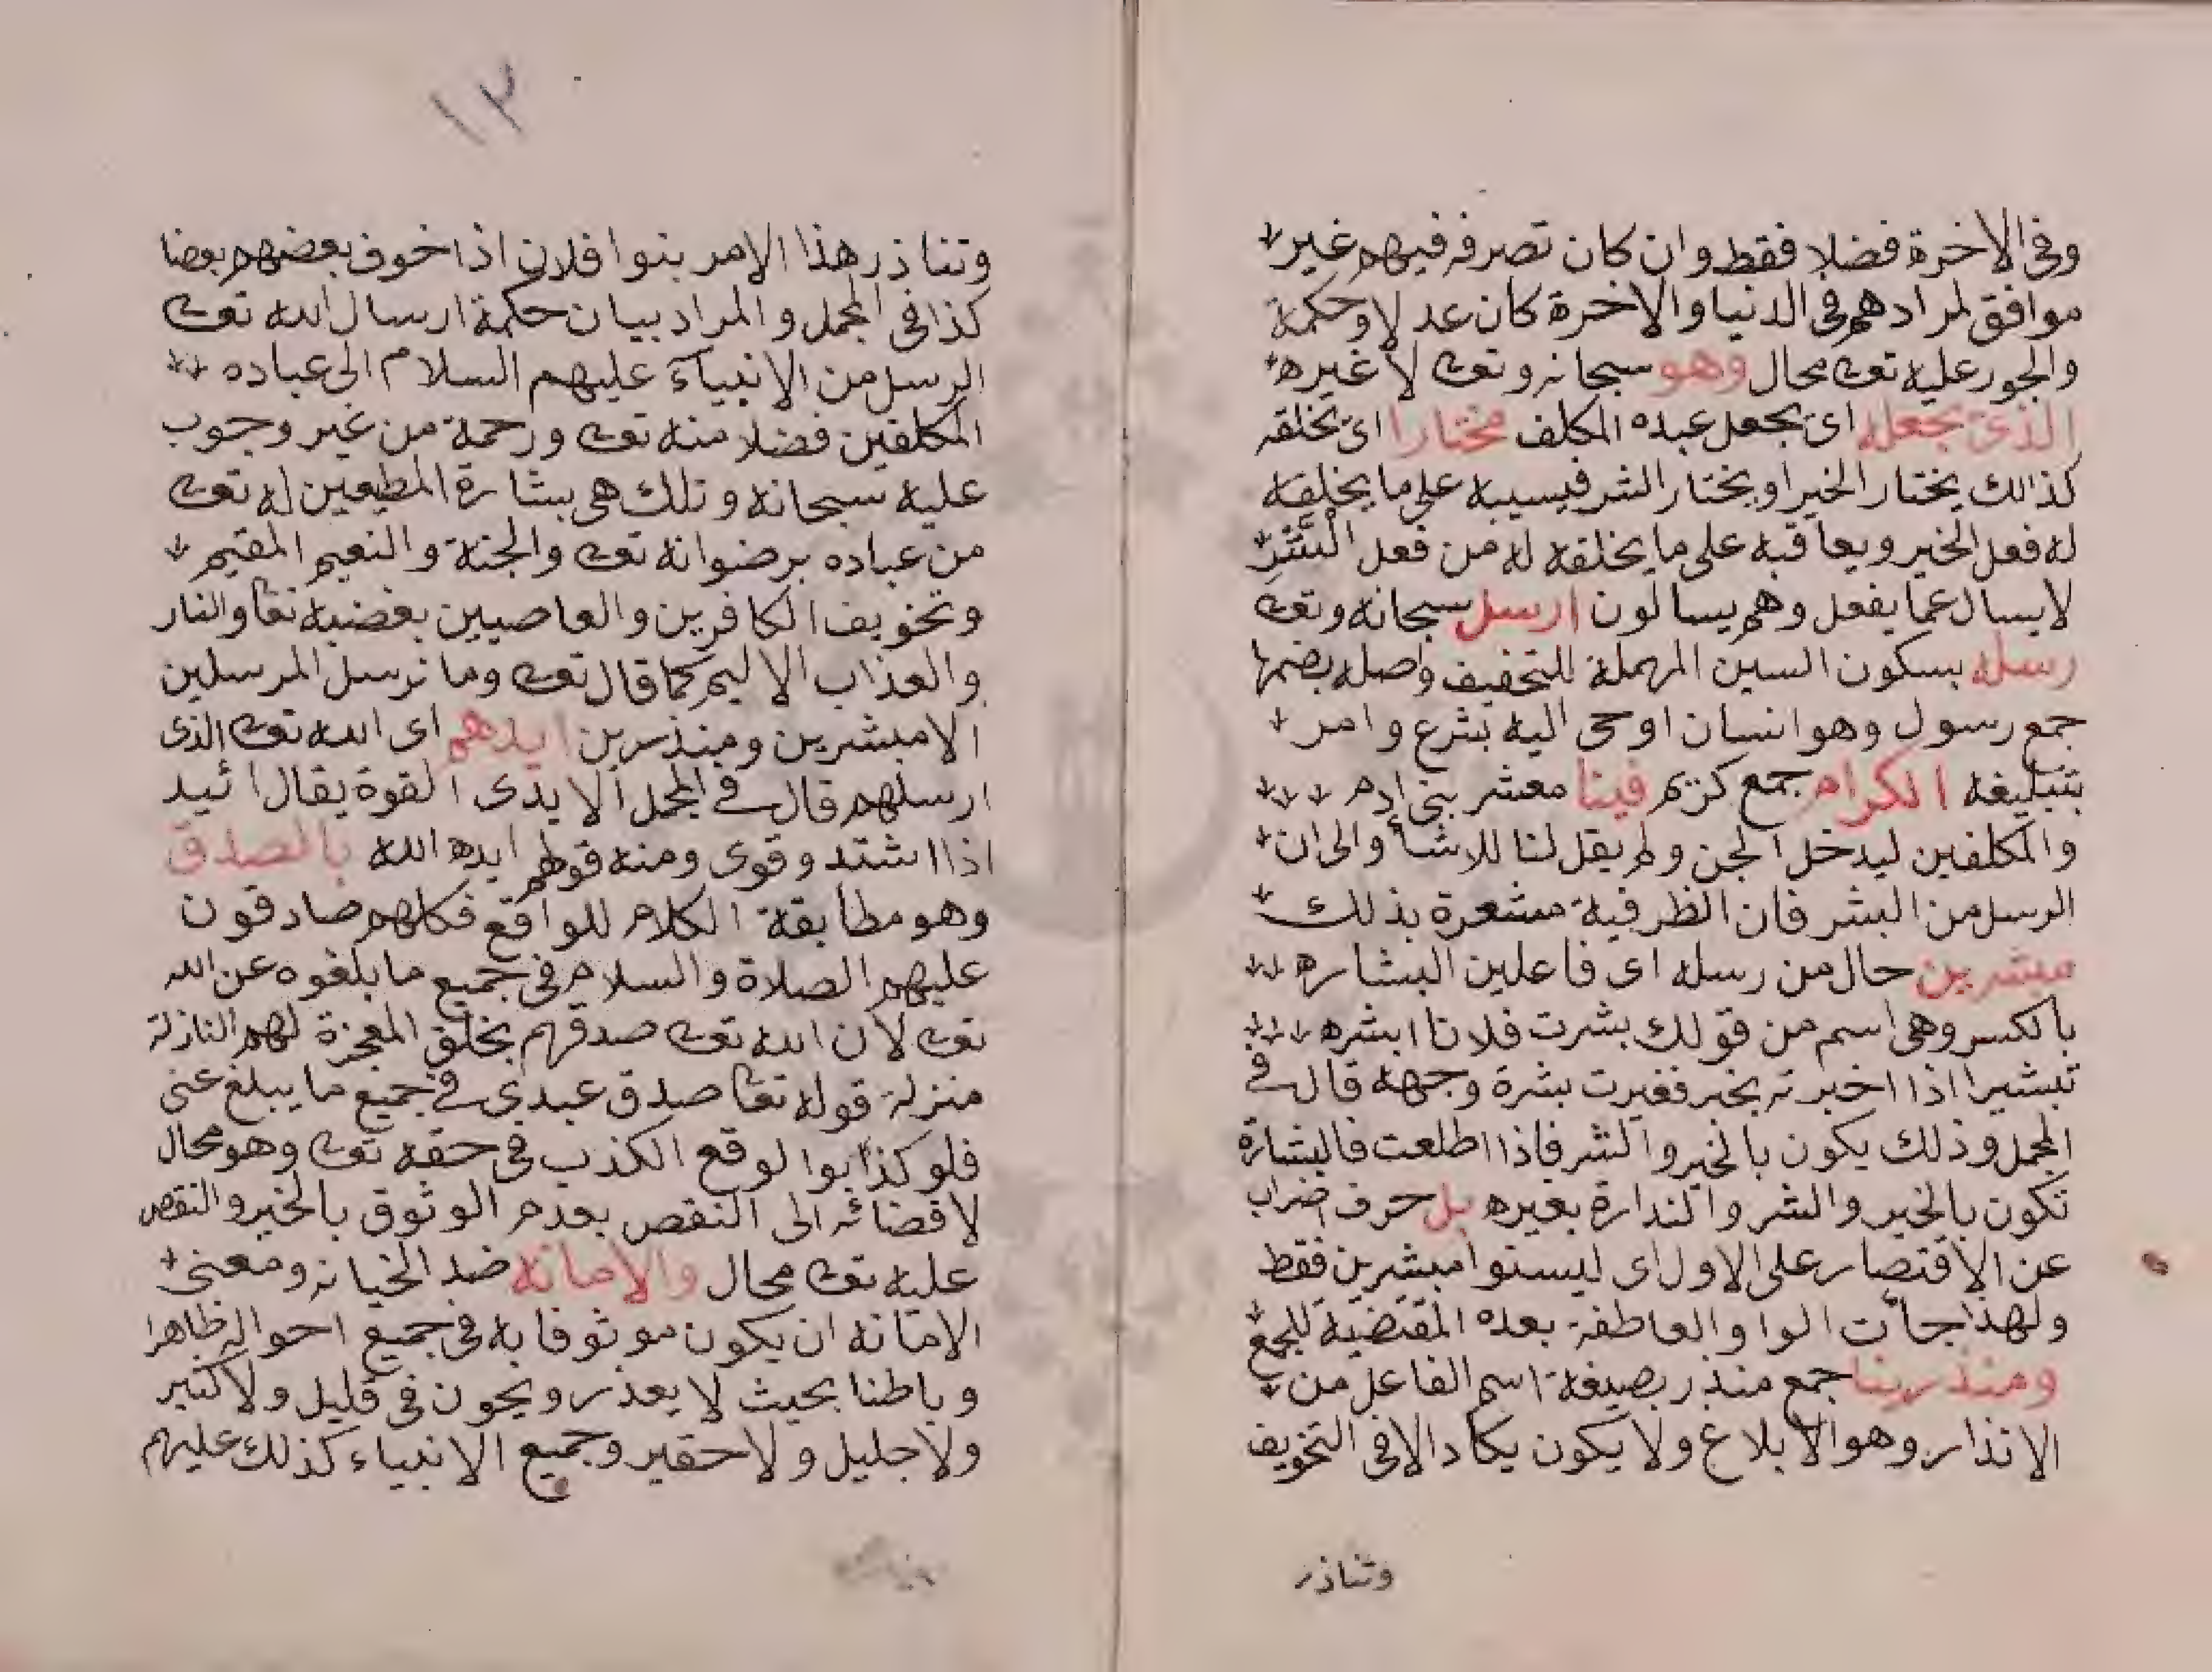 وفى الاخرة فضلا فقط وان كان تصرفه فيهم غير
موافق لمرادهم فى الدنيا والاخرة كان عدلا وحكمة
والجور عليه تعالى محال وهو سبحانه وتعالى لا غيره
الذى يجعله اى يجعل عبده المكلف مختارا اى يخلقه
كذالك يختار الخير او يختار الشر فيسيبه على ما يخلقه
له فعل الخير ويعاقبه على ما يخلقه له من فعل الشر
لا يسال عما يفعل وهم يسالون ارسل سبحانه وتعالى
رسله بسكون السين المهملة للتخفيف واصله بضمها
جمع رسول وهو انسان اوحى اليه بشرع وامر
بتبليغه الكرام جمع كريم فينا معشر بنى ادم
والمكلفين ليدخل الجن ولم يقل لنا للاشأ والى ان
الرسل من البشر فان الظرفية مشعرة بذلك
مبشرين حال من رسله اى فاعلين البشاره
بالكسر وهى اسم من قولك بشرت فلانا ابشره
تبشيرا اذا اخبرته بخبر فغيرت بشرة وجهه قال فى
المجمل وذلك يكون بالخير والشر فاذا اطلعت فالبشارة
تكون بالخير والشر والندارة بغيره بل حرف اضراب
عن الاقتصار على الاول اى ليسنوا مبشرين فقط
ولهذا جأت الواو العاطفة بعده المقتضية للجمع
ومنذرينا جمع منذر بصيغة اسم الفاعل من
الانذار وهو الابلاغ ولا يكون يكاد الا فى التخويف
وتناذر
١٣
وتناذر هذا الامر بنوا فلان اذا خوف بعضهم بعضا
كذا فى المجمل والمراد بيان حكمة ارسال الله تعالى
الرسل من الانبيآء عليهم السلام الى عباده
المكلفين فضلا منه تعالى ورحمة من غير وجوب
عليه سبحانه وتلك هى بشارة المطيعين له تعالى
من عباده برضوانه تعالى والجنة والنعيم المقيم
وتخويف الكافرين والعاصيين بغضبه تعا والنار
والعذاب الاليم كما قال تعالى وما نرسل المرسلين
الا مبشرين ومنذرين ايدهم اى الله تعالى الذى
ارسلهم قال فى المجمل الايدى القوة يقال ائيد
اذا اشتد وقوى ومنه قولهم ايده الله بالصدق
وهو مطابقة الكلام للواقع فكلهم صادقون
عليهم الصلاة والسلام فى جميع ما بلغوه عن الله
تعالى لان الله تعالى صدقهم بخلق المعجزة لهم النازلة
منزلة قوله تعا صدق عبدى فى جميع ما يبلغ عنى
فلو كذابوا لوقع الكذب فى حقه تعالى وهو محال
لافضائه الى النقص بعدم الوثوق بالخير والنقص
عليه تعالى محال والامانه ضد الخيانه ومعنى
الامانه ان يكون موثوقا به فى جميع احواله ظاهرا
وباطنا بحيث لا يعذر ويخون فى قليل ولا كثير
ولا جليل ولا حقير وجميع الانبياء كذلك عليهم